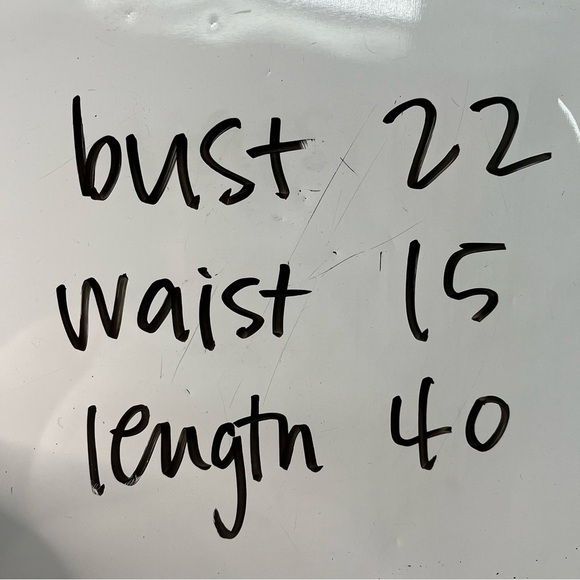 bust 22
waist 15
length 40